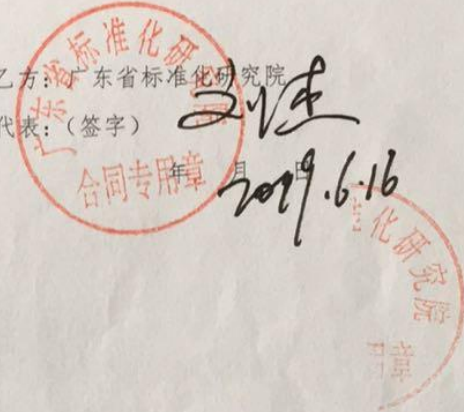 乙方：广东省标准化研究院
代表：（签字）
年 月 日
2019.6.16
广东省标准化研究院
合同专用章
化研究院
章